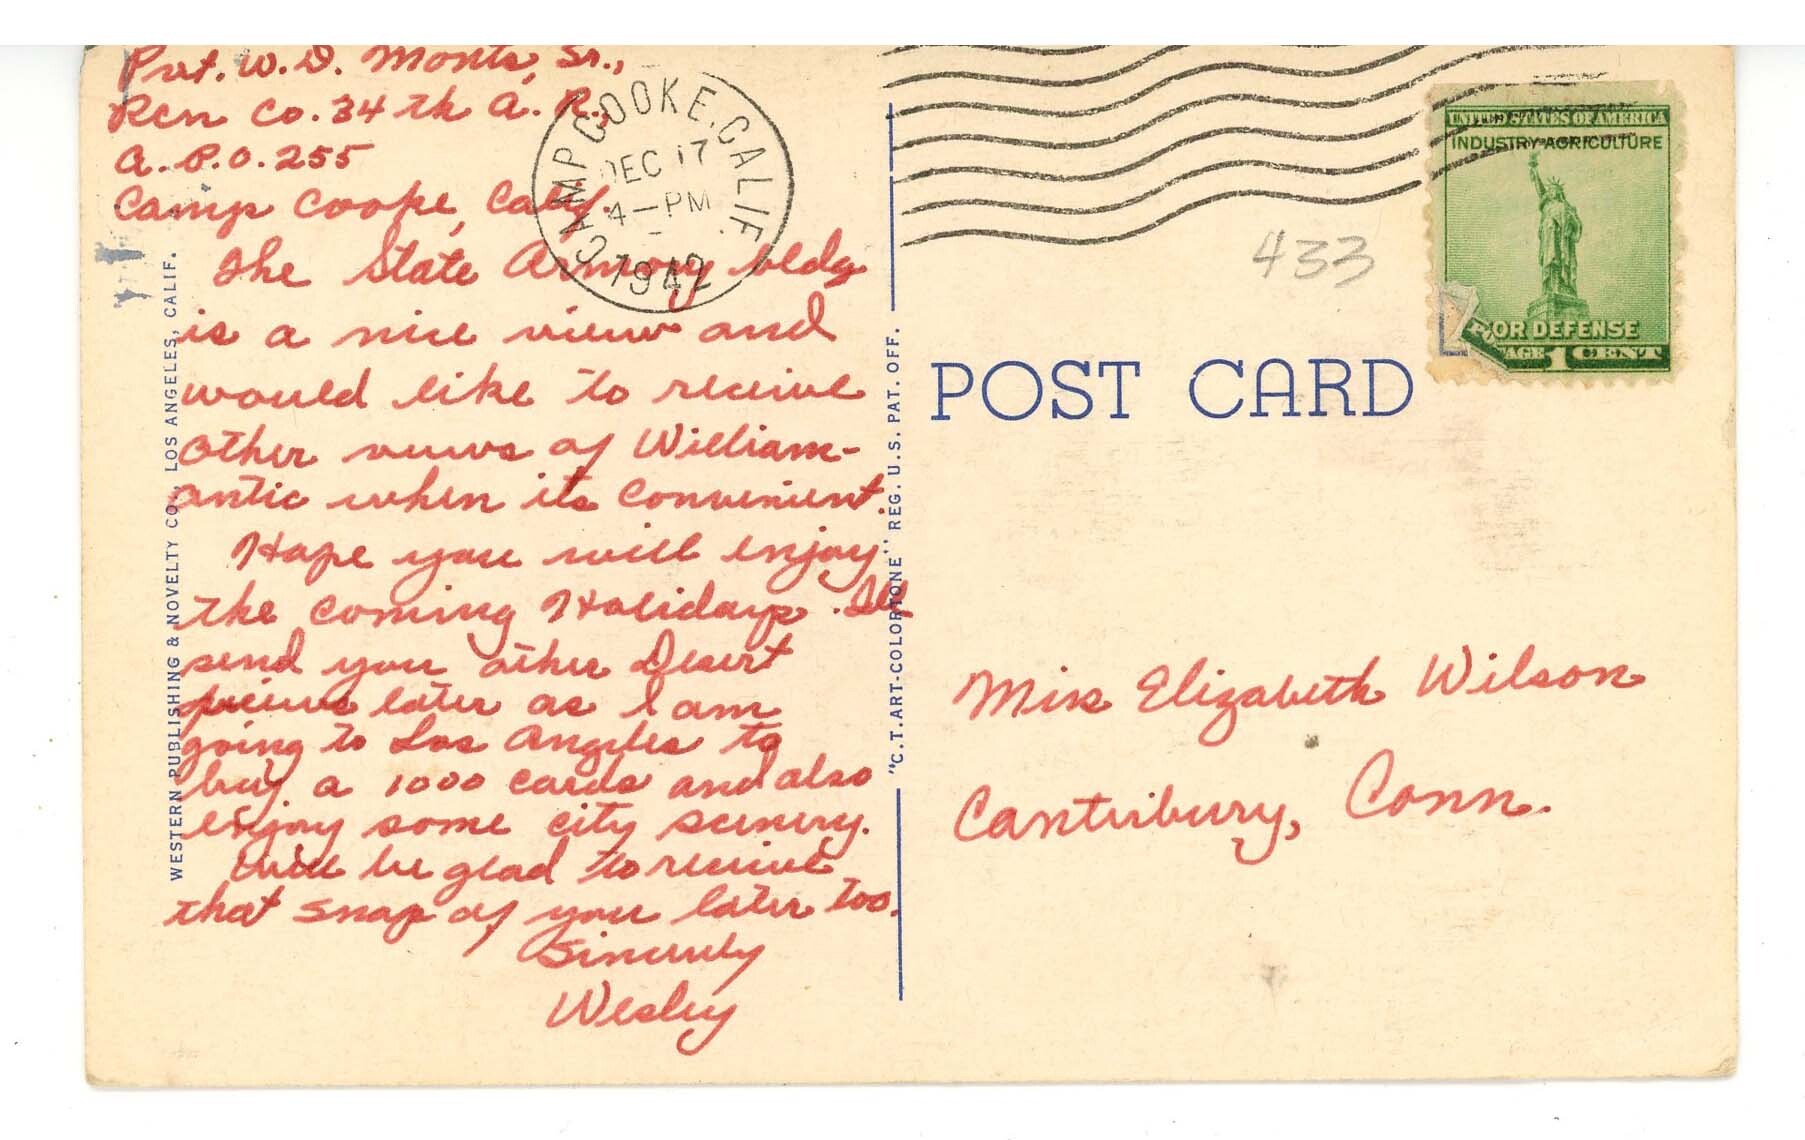 Pvt. W. D. Monts, Sr.,
Rcn Co. 34th A. R.,
A. P. O. 255
Camp Cooke, Calif.
The State Armory bldg
is a nice view and
would like to receive
other views of William-
antic when its convenient.
Hope you will enjoy
the coming Holidays. Ill
send you other Desert
views later as I am
going to Los Angeles to
buy a 1000 cards and also
enjoy some city scenery.
Will be glad to receive
that snap of you later too.
Sincerely
Wesley
WESTERN PUBLISHING & NOVELTY CO., LOS ANGELES, CALIF.
"C.T. ART-COLORTONE" REG. U.S. PAT. OFF.
CAMP COOKE, CALIF.
DEC 17
4-PM
1942
433
UNITED STATES OF AMERICA
INDUSTRY AGRICULTURE
FOR DEFENSE
AGE 1 CENT
POST CARD
Miss Elizabeth Wilson
Canterbury, Conn.